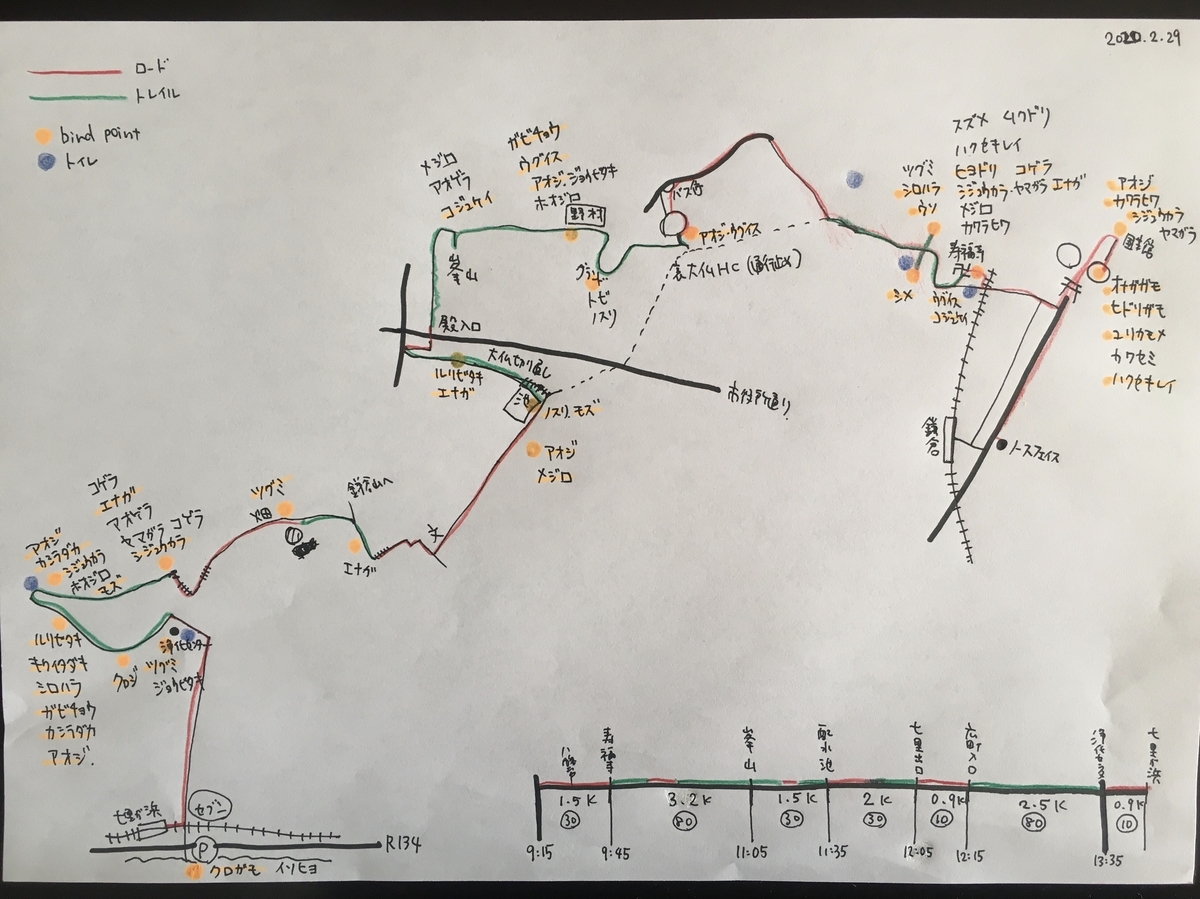 2020.2.29
ロード
トレイル
bind point
トイレ
メジロ
アオゲラ
コジュケイ
ガビチョウ
ウグイス
アオジ.ジョウビタキ
ホオジロ
野村
峯山
トビ
ノスリ
バス停
アオジ・ウグイス
裏大仏HC(通行止メ)
ツグミ
シロハラ
ウソ
シメ
スズメ ムクドリ
ハクセキレイ
ヒヨドリ コゲラ
シジュウカラ・ヤマガラ エナガ
メジロ
カワラヒワ
寿福寺
ウグイス
コジュケイ
アオジ
カワラヒワ
シジュウカラ
ヤマガラ
オナガガモ
ヒドリガモ
ユリカモメ
カワセミ
ハクセキレイ
鎌倉
ノースフェイス
市役所通り
殿入口
大仏切り通し
ルリビタキ
エナガ
池
ノスリ.モズ
アオジ
メジロ
文
鎌倉山へ
エナガ
ツグミ
畑
コゲラ
エナガ
アオゲラ
ヤマガラ コゲラ
シジュウカラ
アオジ
カシラダカ
シジュウカラ
ホオジロ
モズ
ルリビタキ
キクイタダキ
シロハラ
ガビチョウ
カシラダカ
アオジ.
クロジ
浄化センター
ツグミ
ジョウビタキ
七里が浜
セブン
P
R134
クロガモ イソヒヨ
八幡宮
寿福寺
峯山
配水池
七里出口
広町入口
浄化センター
七里が浜
1.5K
3.2K
1.5K
2K
0.9K
2.5K
0.9K
30
80
30
30
10
80
10
9:15
9:45
11:05
11:35
12:05
12:15
13:35